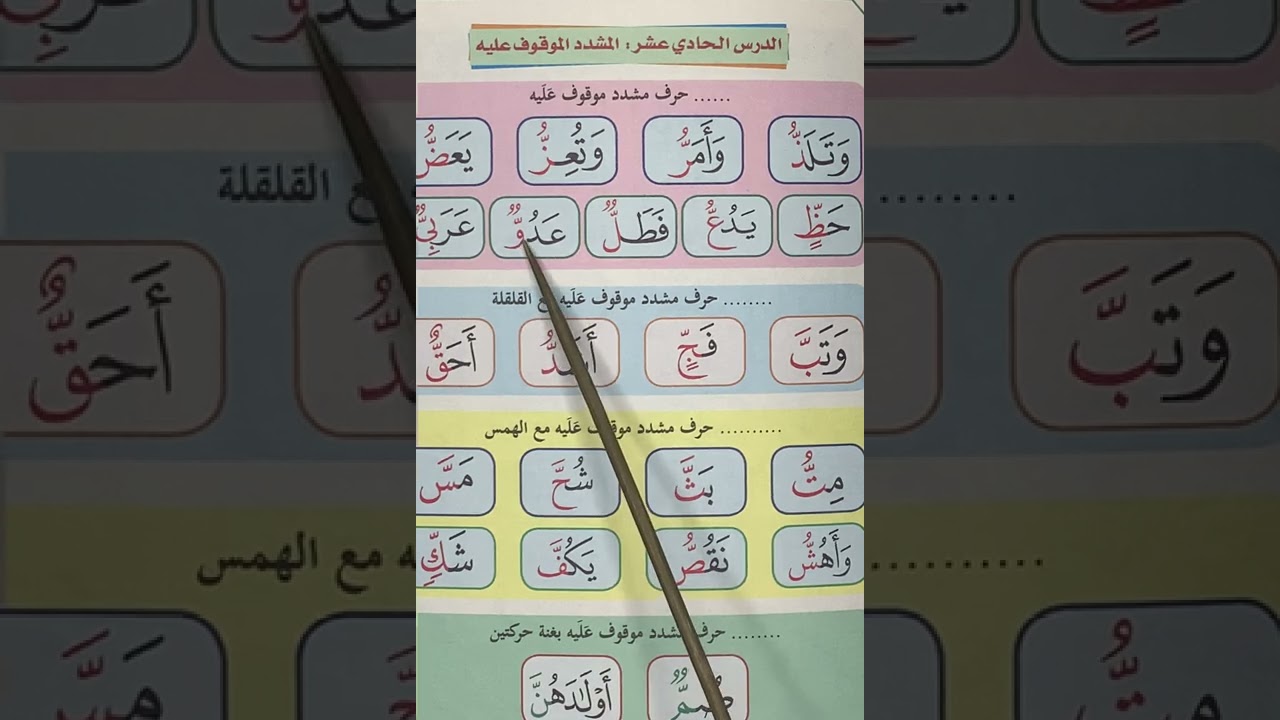 الدرس الحادي عشر: المشدد الموقوف عليه
...... حرف مشدد موقوف عَلَيه
وَتَلَذُّ وَأَمَرُّ وَتُعِزُّ يَعَضُّ
حَظٍّ يَدُعُّ فَطَلٌّ عَدُوٌّ عَرَبِيٌّ
........ حرف مشدد موقوف عَلَيه مع القلقلة
وَتَبَّ فَجٍّ أَشَدُّ أَحَقُّ
.......... حرف مشدد موقوف عَلَيه مع الهمس
مِتُّ بَثَّ شُحَّ مَسَّ
وَأَهُشُّ نَقُصُّ يَكُفَّ شَكٍّ
........ حرف مشدد موقوف عَلَيه بغنة حركتين
صُمٌّ أَوْلَٰدَهُنَّ